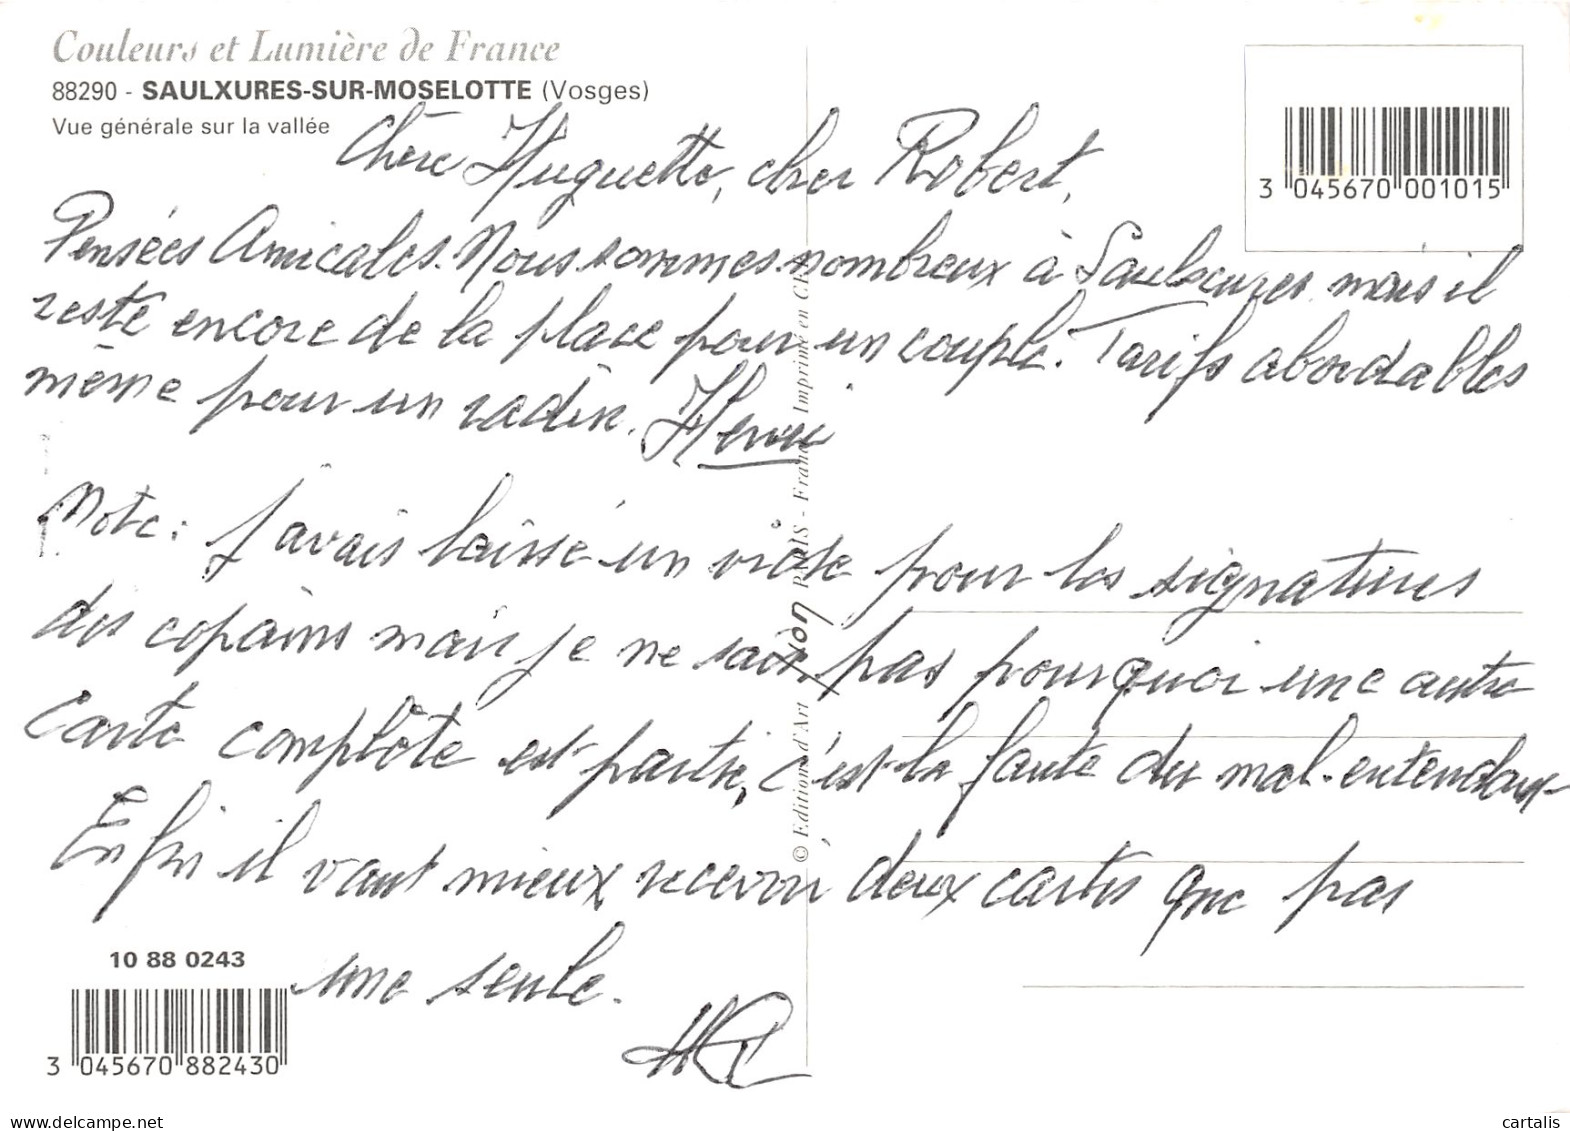 Couleurs et Lumière de France
88290 - SAULXURES-SUR-MOSELOTTE (Vosges)
Vue générale sur la vallée
3 045670 001015
Chère Huguette, cher Robert,
Pensées Amicales. Nous sommes nombreux à Saulxures mais il
reste encore de la place pour un couple. Tarifs abordables
même pour un radin. Henri
Note : J'avais laissé un vide pour les signatures
des copains mais je ne sais pas pourquoi une autre
carte complète est partie, c'est la faute du mal-entendant
Enfin il vaut mieux recevoir deux cartes que pas
une seule.
© Editions d'Art yvon PARIS - France Imprimé en CEE
10 88 0243
3 045670 882430
cartalis